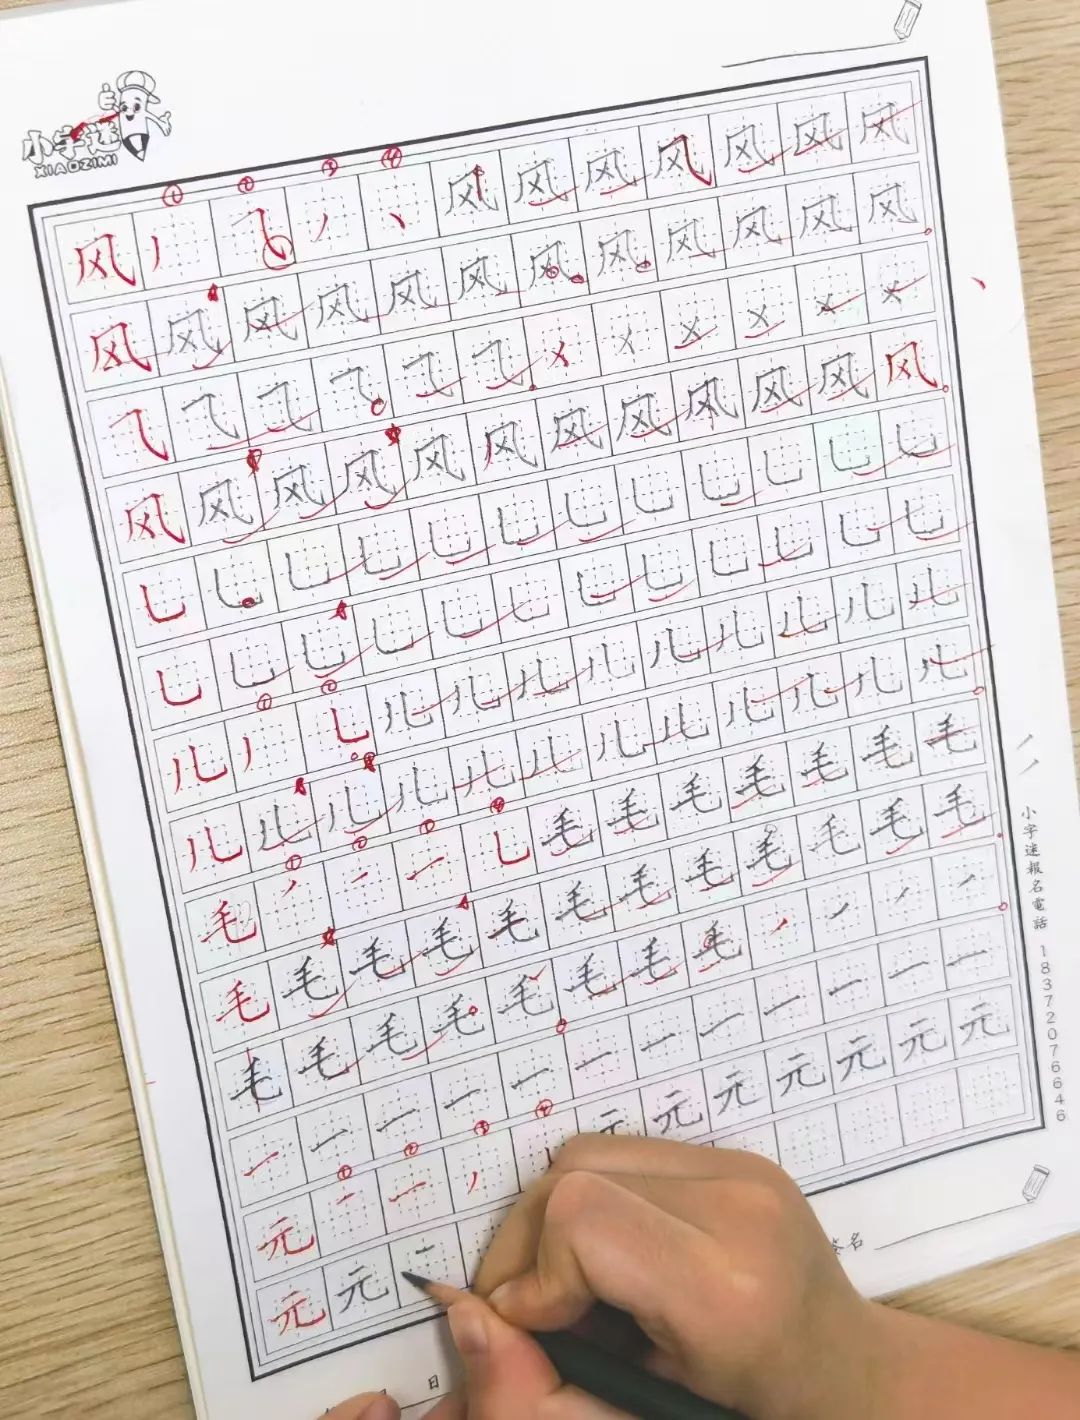 小字迷
XIAOZIMI
① ② ③ ④
风 丿 ⺄ 丿 丶 风 风 风 风 风 风 风
风 风 风 风 风 风 风 风 风 风 风 风
⺄ ⺄ ⺄ ⺄ ⺄ ⺄ 㐅 㐅 㐅 㐅 㐅 㐅
风 风 风 风 风 风 风 风 风 风 风 风
乚 乚 乚 乚 乚 乚 乚 乚 乚 乚 乚 乚
乚 乚 乚 乚 乚 乚 乚 乚 乚 乚 乚 乚
① ②
儿 丿 乚 儿 儿 儿 儿 儿 儿 儿 儿 儿
儿 儿 儿 儿 儿 儿 儿 儿 儿 儿 儿 儿
① ② ③ ④
毛 丿 一 一 乚 毛 毛 毛 毛 毛 毛 毛
毛 毛 毛 毛 毛 毛 毛 毛 毛 毛 毛 毛
毛 毛 毛 毛 毛 毛 毛 毛 丿 丿 丿 丿
一 一 一 一 一 一 一 一 一 一 一 一
① ② ③ ④
元 一 一 丿 元 元 元 元 元 元 元
元 元 一
小字迷報名電話 18372076646
日
名